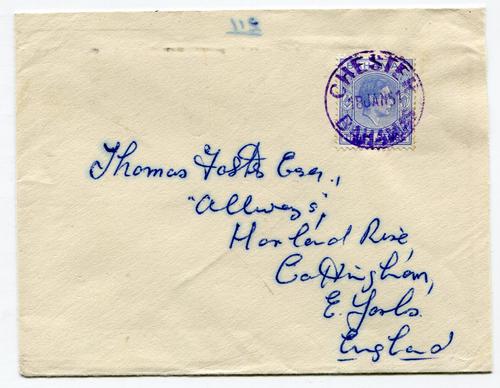 CHESTER
8 JAN 51
BAHAMAS
Thomas Foster Esq.,
"Allways",
Harland Rise,
Cottingham,
E. Yorks.
England